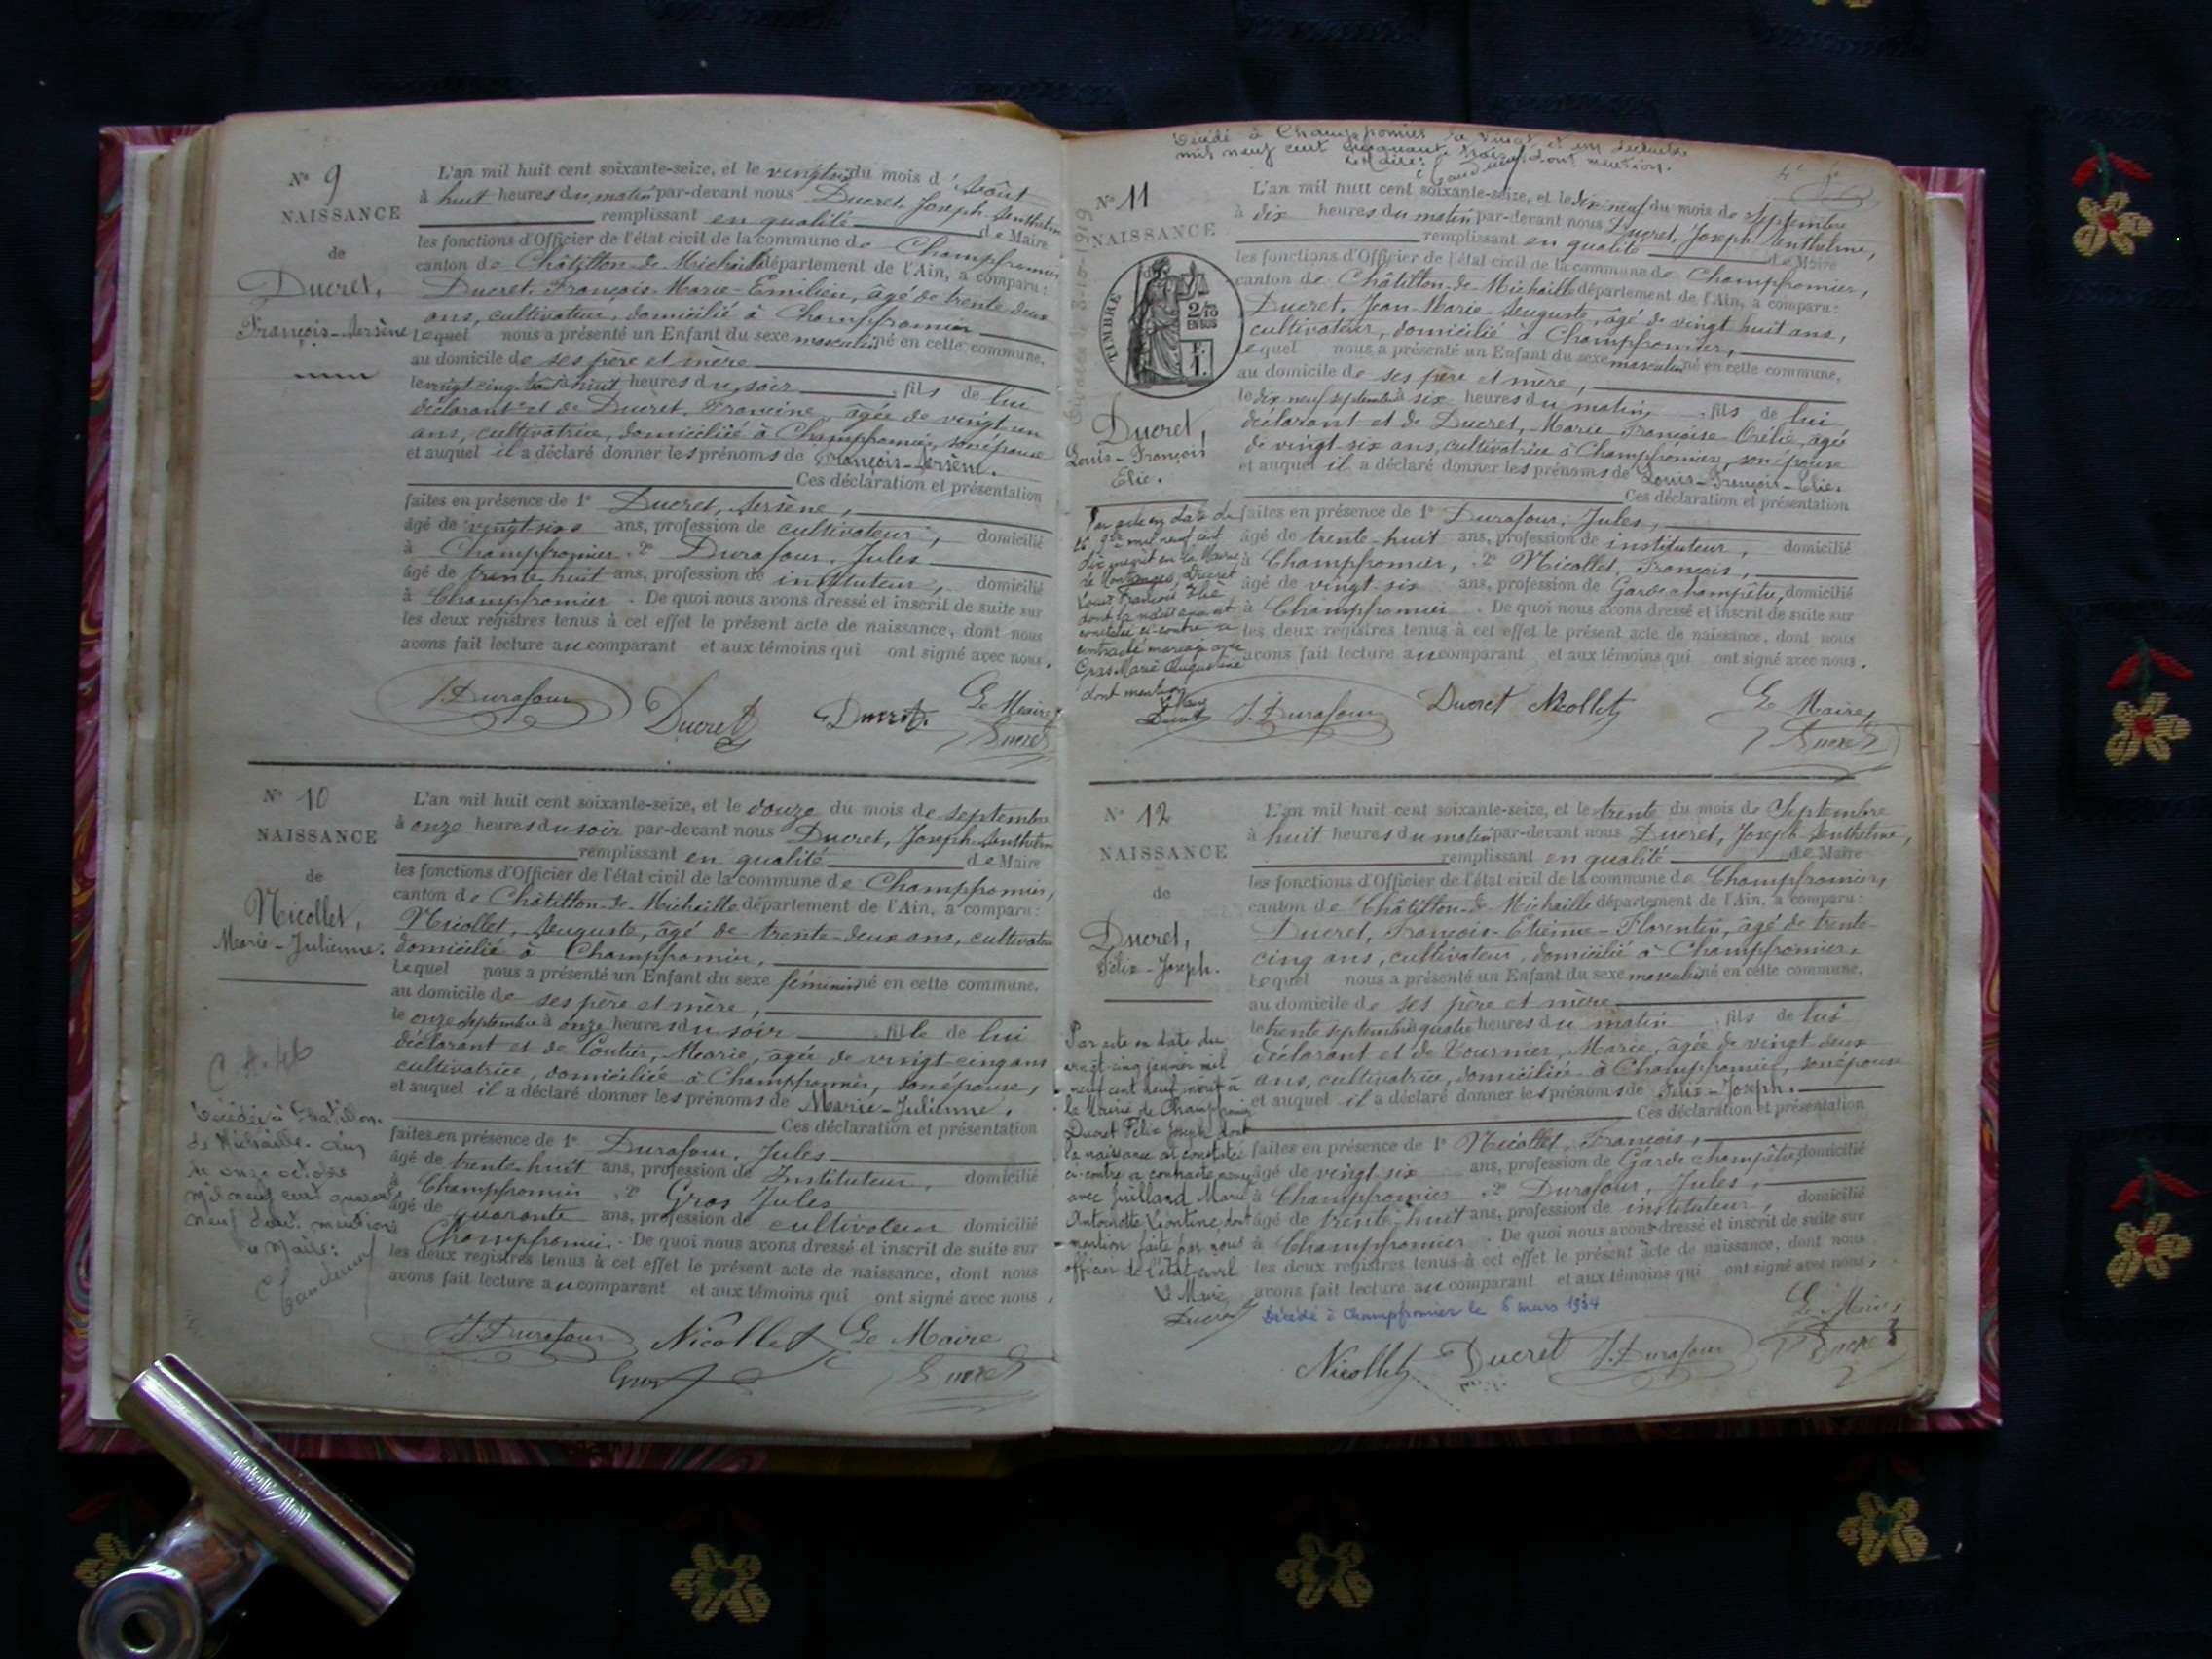 N° 9
NAISSANCE
de
Ducret,
François-Arsène
L'an mil huit cent soixante-seize, et le du mois d'Août
à huit heures du matin par-devant nous Ducret, Joseph-Anthelme
remplissant en qualité de Maire
les fonctions d'Officier de l'état civil de la commune de Champfromier
canton de Châtillon-de-Michaille département de l'Ain, a comparu:
Ducret, François-Marie-Emilien, âgé de trente deux
ans, cultivateur, domicilié à Champfromier
Lequel nous a présenté un Enfant du sexe masculin né en cette commune,
au domicile de ses père et mère
le vingt cinq à huit heures du soir, fils de lui
déclarant et de Ducret, Francine, âgée de vingt un
ans, cultivatrice, domiciliée à Champfromier, son épouse
et auquel il a déclaré donner les prénoms de François-Arsène.
Ces déclaration et présentation
faites en présence de 1° Ducret, Arsène,
âgé de vingt six ans, profession de cultivateur, domicilié
à Champfromier. 2° Durafour, Jules
âgé de trente-huit ans, profession de instituteur, domicilié
à Champfromier. De quoi nous avons dressé et inscrit de suite sur
les deux registres tenus à cet effet le présent acte de naissance, dont nous
avons fait lecture au comparant et aux témoins qui ont signé avec nous.
J. Durafour Ducret Ducret. Le Maire,
Ducret
N° 10
NAISSANCE
de
Nicollet,
Marie-Julienne.
C.A. 46
Décédée à Chatillon
de Michaille. Ain
le onze octobre
mil neuf cent quarante
neuf dont mention
Le Maire:
L'an mil huit cent soixante-seize, et le douze du mois de septembre
à onze heures du soir par-devant nous Ducret, Joseph-Anthelme
remplissant en qualité de Maire
les fonctions d'Officier de l'état civil de la commune de Champfromier,
canton de Châtillon-de-Michaille département de l'Ain, a comparu:
Nicollet, Auguste, âgé de trente-deux ans, cultivateur
domicilié à Champfromier,
Lequel nous a présenté un Enfant du sexe féminin né en cette commune,
au domicile de ses père et mère,
le onze septembre à onze heures du soir, fille de lui
déclarant et de Coutier, Marie, âgée de vingt-cinq ans
cultivatrice, domiciliée à Champfromier, son épouse,
et auquel il a déclaré donner les prénoms de Marie-Julienne.
Ces déclaration et présentation
faites en présence de 1° Durafour, Jules
âgé de trente-huit ans, profession de Instituteur, domicilié
à Champfromier, 2° Gros Jules
âgé de quarante ans, profession de cultivateur domicilié
à Champfromier. De quoi nous avons dressé et inscrit de suite sur
les deux registres tenus à cet effet le présent acte de naissance, dont nous
avons fait lecture au comparant et aux témoins qui ont signé avec nous.
J. Durafour Nicollet Le Maire
Gros Ducret
Décédé à Champfromier le vingt et un décembre
mil neuf cent cinquante trois dont mention.
Le Maire:
N° 11
NAISSANCE
TIMBRE
2/10
EN SUS
F.
1.
Ducret,
Louis-François
Elie.
Par acte en date du
mil neuf cent
dix inscrit en la Mairie
de Montanges, Ducret
Louis François Elie
dont la naissance est
constatée ci-contre a
contracté mariage avec
Gras Marie Augustine
dont mention
Le Maire
Ducret
L'an mil huit cent soixante-seize, et le dix-neuf du mois de Septembre
à dix heures du matin par-devant nous Ducret, Joseph-Anthelme,
remplissant en qualité de Maire
les fonctions d'Officier de l'état civil de la commune de Champfromier,
canton de Châtillon-de-Michaille département de l'Ain, a comparu:
Ducret, Jean-Marie-Auguste, âgé de vingt huit ans,
cultivateur, domicilié à Champfromier,
Lequel nous a présenté un Enfant du sexe masculin né en cette commune,
au domicile de ses père et mère,
le dix neuf septembre à six heures du matin, fils de lui
déclarant et de Ducret, Marie Françoise Orélie, âgée
de vingt-six ans, cultivatrice à Champfromier, son épouse
et auquel il a déclaré donner les prénoms de Louis-François-Elie.
Ces déclaration et présentation
faites en présence de 1° Durafour, Jules,
âgé de trente-huit ans, profession de instituteur, domicilié
à Champfromier, 2° Nicollet, François,
âgé de vingt-six ans, profession de Garde champêtre, domicilié
à Champfromier. De quoi nous avons dressé et inscrit de suite sur
les deux registres tenus à cet effet le présent acte de naissance, dont nous
avons fait lecture au comparant et aux témoins qui ont signé avec nous.
J. Durafour Ducret Nicollet Le Maire,
Ducret
N° 12
NAISSANCE
de
Ducret,
Félix-Joseph.
Par acte en date du
vingt cinq janvier mil
neuf cent neuf inscrit à
la Mairie de Champfromier
Ducret Félix Joseph dont
la naissance est constatée
ci-contre a contracté mariage
avec Juilland Marie
Antoinette Léontine, dont
mention faite par nous
officier de l'état civil
Le Maire
Ducret
L'an mil huit cent soixante-seize, et le trente du mois de Septembre
à huit heures du matin par-devant nous Ducret, Joseph-Anthelme,
remplissant en qualité de Maire
les fonctions d'Officier de l'état civil de la commune de Champfromier,
canton de Châtillon-de-Michaille département de l'Ain, a comparu:
Ducret, François-Etienne-Florentin, âgé de trente
cinq ans, cultivateur, domicilié à Champfromier,
Lequel nous a présenté un Enfant du sexe masculin né en cette commune,
au domicile de ses père et mère
le trente septembre à quatre heures du matin, fils de lui
déclarant et de Tournier, Marie, âgée de vingt deux
ans, cultivatrice, domiciliée à Champfromier, son épouse
et auquel il a déclaré donner les prénoms de Félix-Joseph.
Ces déclaration et présentation
faites en présence de 1° Nicollet, François,
âgé de vingt-six ans, profession de Garde champêtre, domicilié
à Champfromier, 2° Durafour, Jules,
âgé de trente-huit ans, profession de instituteur, domicilié
à Champfromier. De quoi nous avons dressé et inscrit de suite sur
les deux registres tenus à cet effet le présent acte de naissance, dont nous
avons fait lecture au comparant et aux témoins qui ont signé avec nous,
Décédé à Champfromier le 6 mars 1954
Le Maire,
Nicollet Ducret J. Durafour Ducret